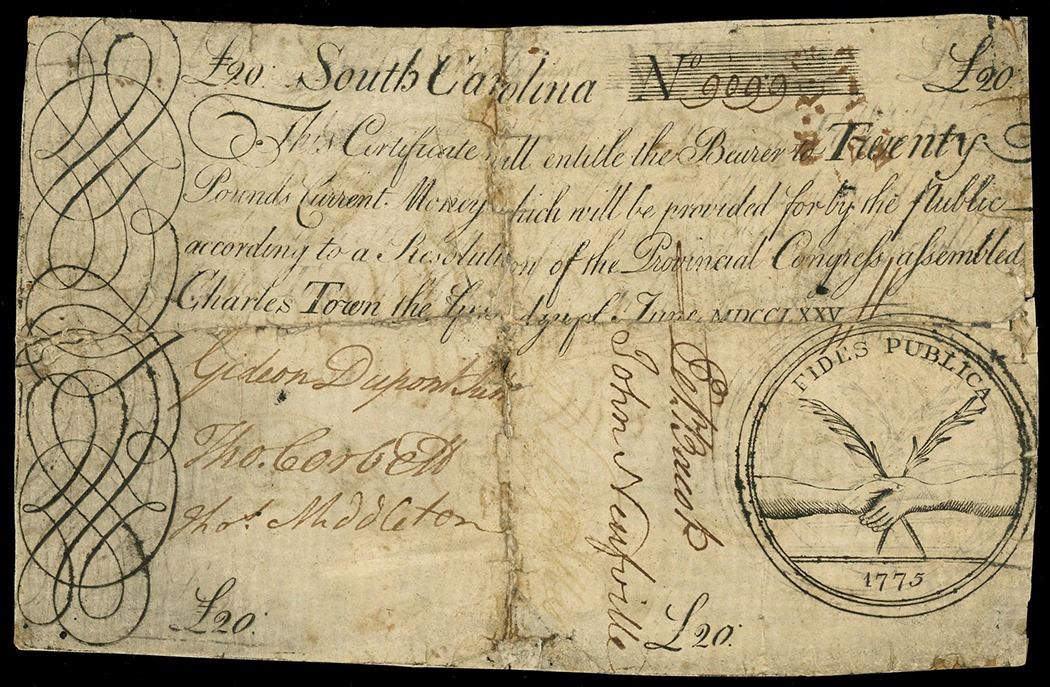 £20. South Carolina Nº 9099 £20.
This Certificate will entitle the Bearer to Twenty
Pounds Current Money which will be provided for by the Public
according to a Resolution of the Provincial Congress assembled
Charles Town the day of June MDCCLXXV
Gideon Dupont Jun
Tho. Corbett
Thos. Middleton
John Neufville
FIDES PUBLICA
1775
£20.
£20.